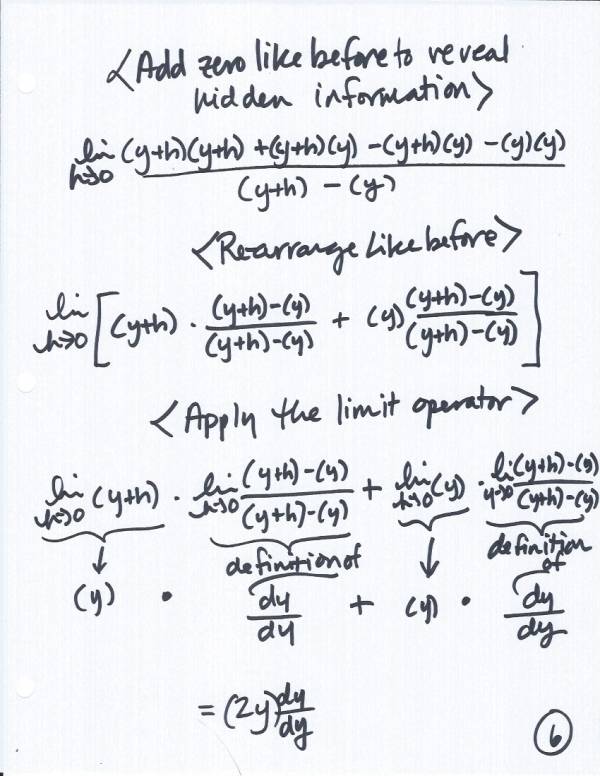 <Add zero like before to reveal
hidden information>
lim h→0 (y+h)(y+h) +(y+h)(y) -(y+h)(y) -(y)(y)
(y+h) - (y)
<Rearrange like before>
lim h→0 [(y+h) · (y+h)-(y) / (y+h)-(y) + (y) (y+h)-(y) / (y+h)-(y)]
<Apply the limit operator>
lim h→0 (y+h) · lim h→0 (y+h)-(y) / (y+h)-(y) + lim h→0 (y) · lim y→0 (y+h)-(y) / (y+h)-(y)
definition of definition of
(y) · dy/dy + (y) · dy/dy
= (2y) dy/dy
6